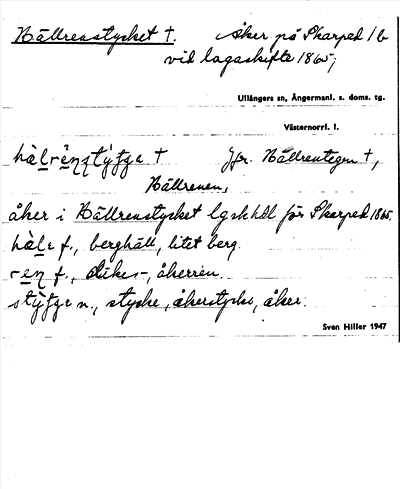 Hällrenstycket †. Åker på Skarped 1 b
vid lagaskifte 1865;
Ullångers sn, Ångermanl. s. doms. tg.
Västernorrl. l.
† Jfr. Hällrentegen †,
Hällrenen,
åker i Hällrenstycket lgskhdl för Skarped 1865.
f., berghäll, litet berg.
f., dikes-, åkerren.
n., stycke, åkerstycke, åker.
Sven Hiller 1947